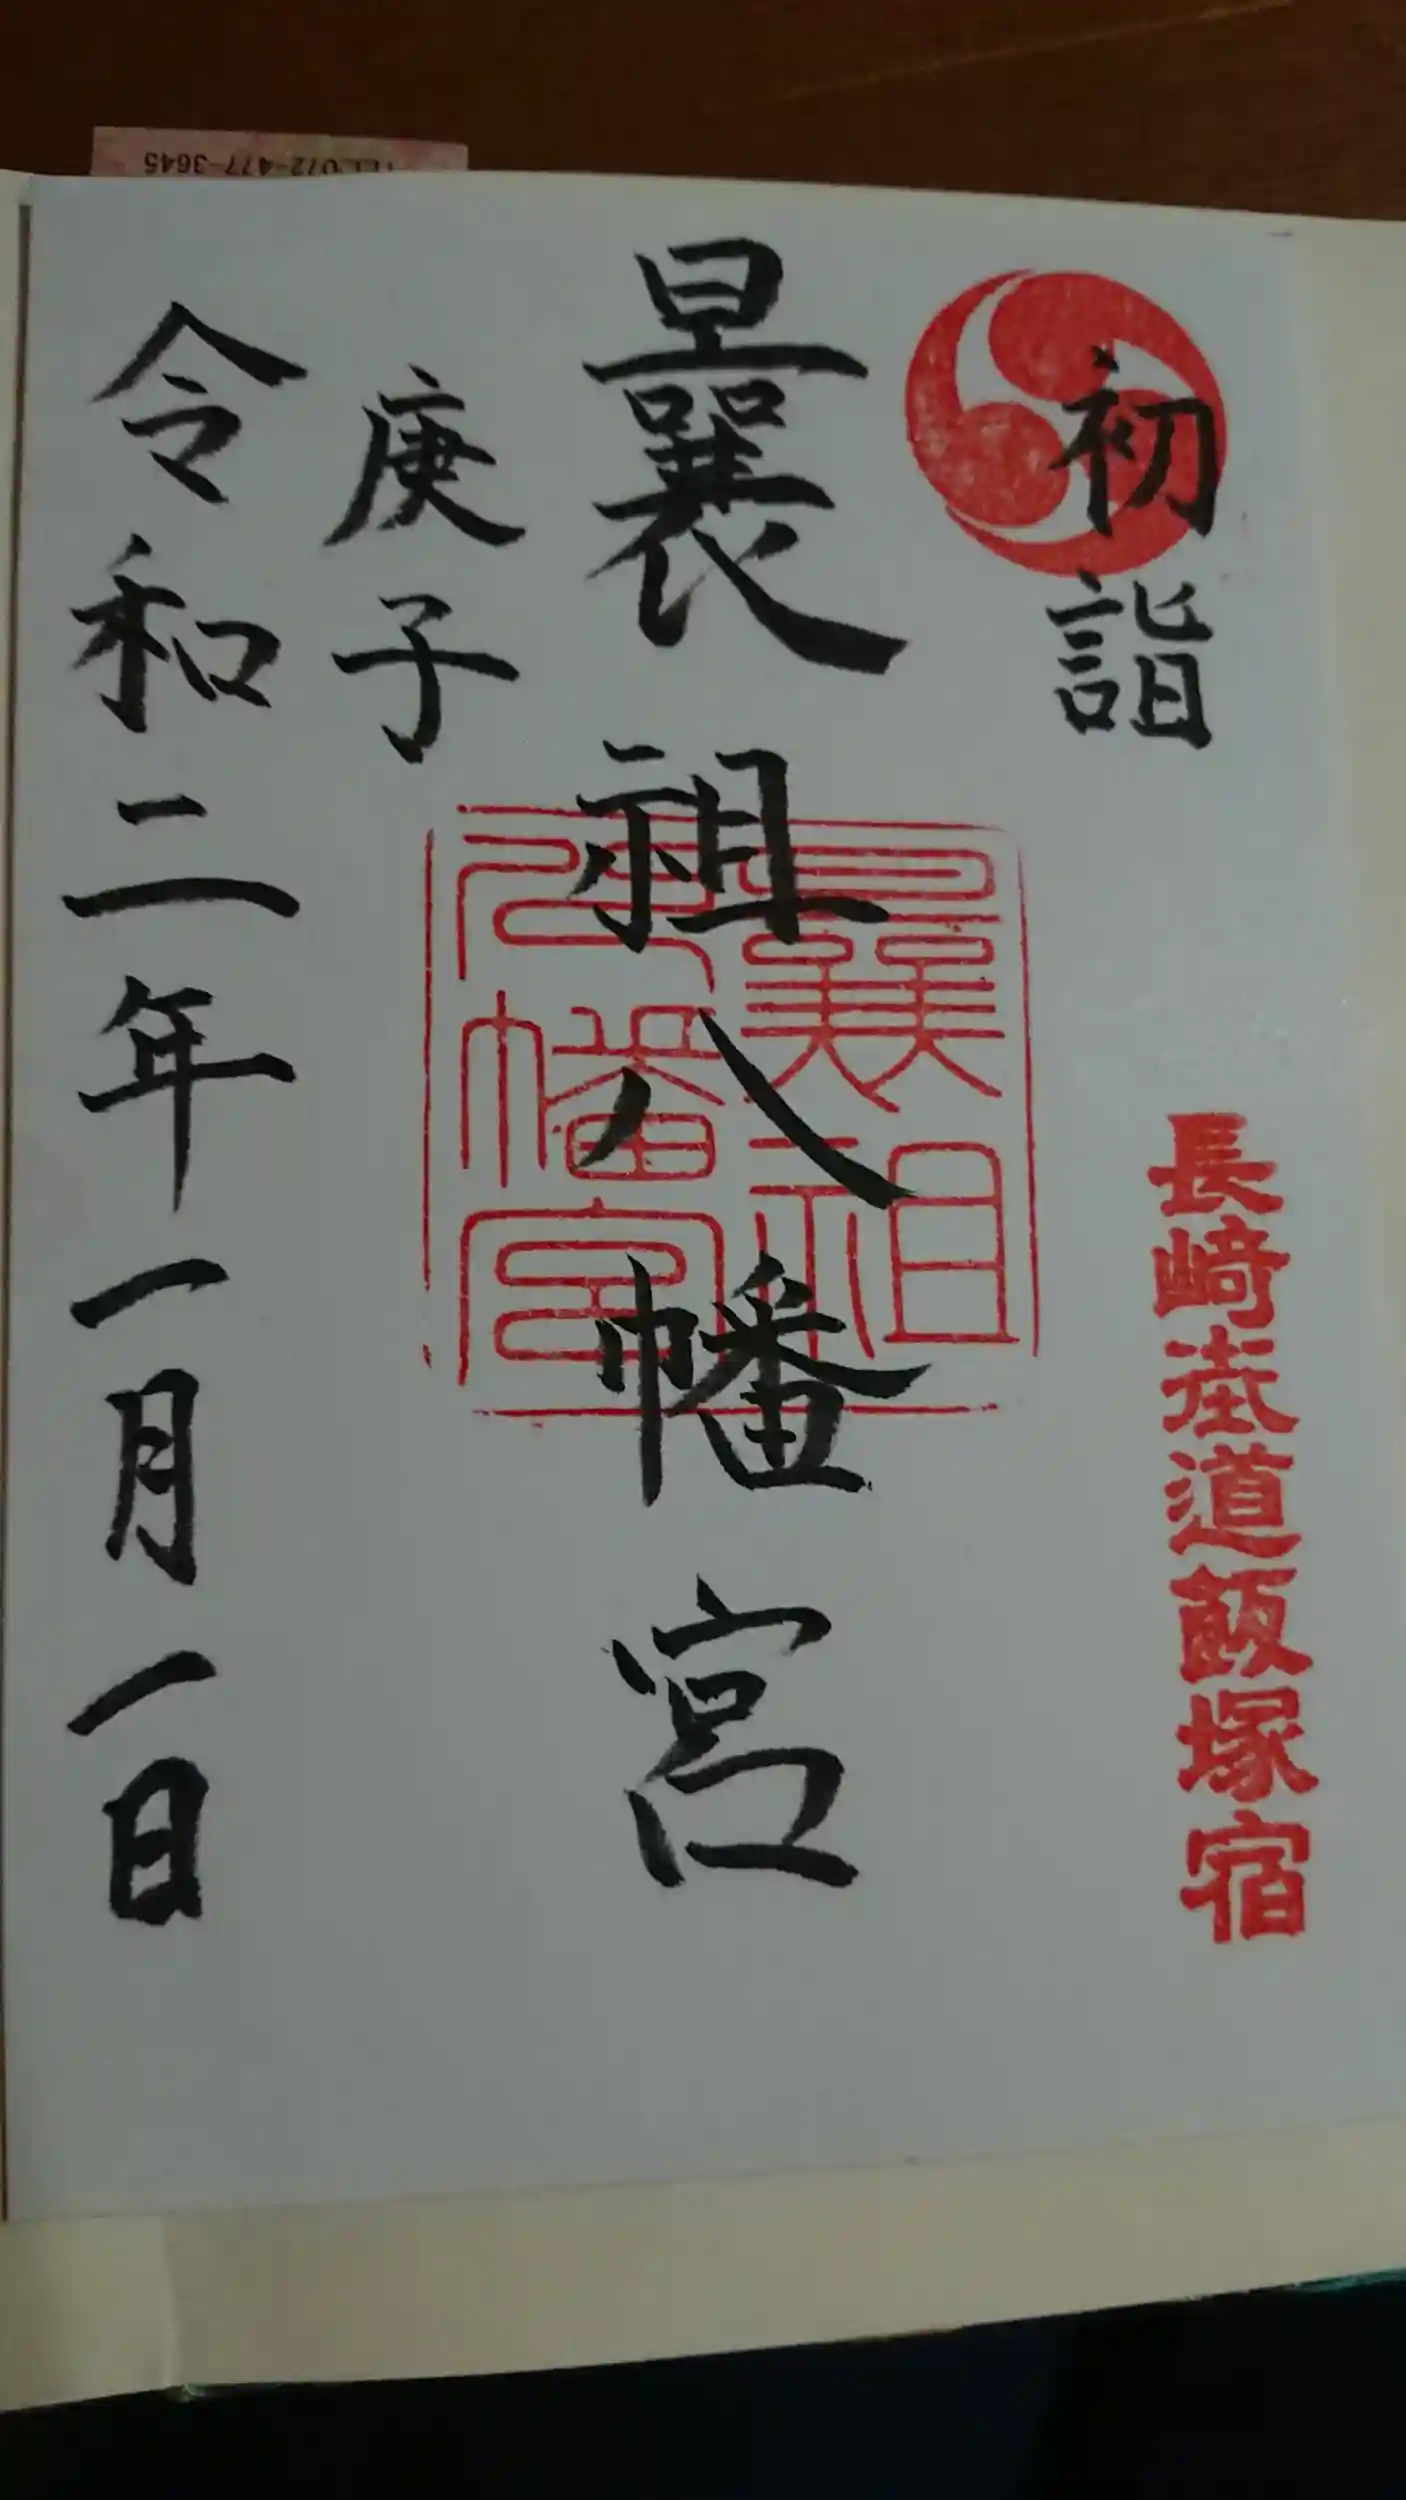 初詣
長崎街道飯塚宿
曩祖八幡宮
曩祖
八幡宮
庚子
令和二年一月一日
TEL 072-477-3645